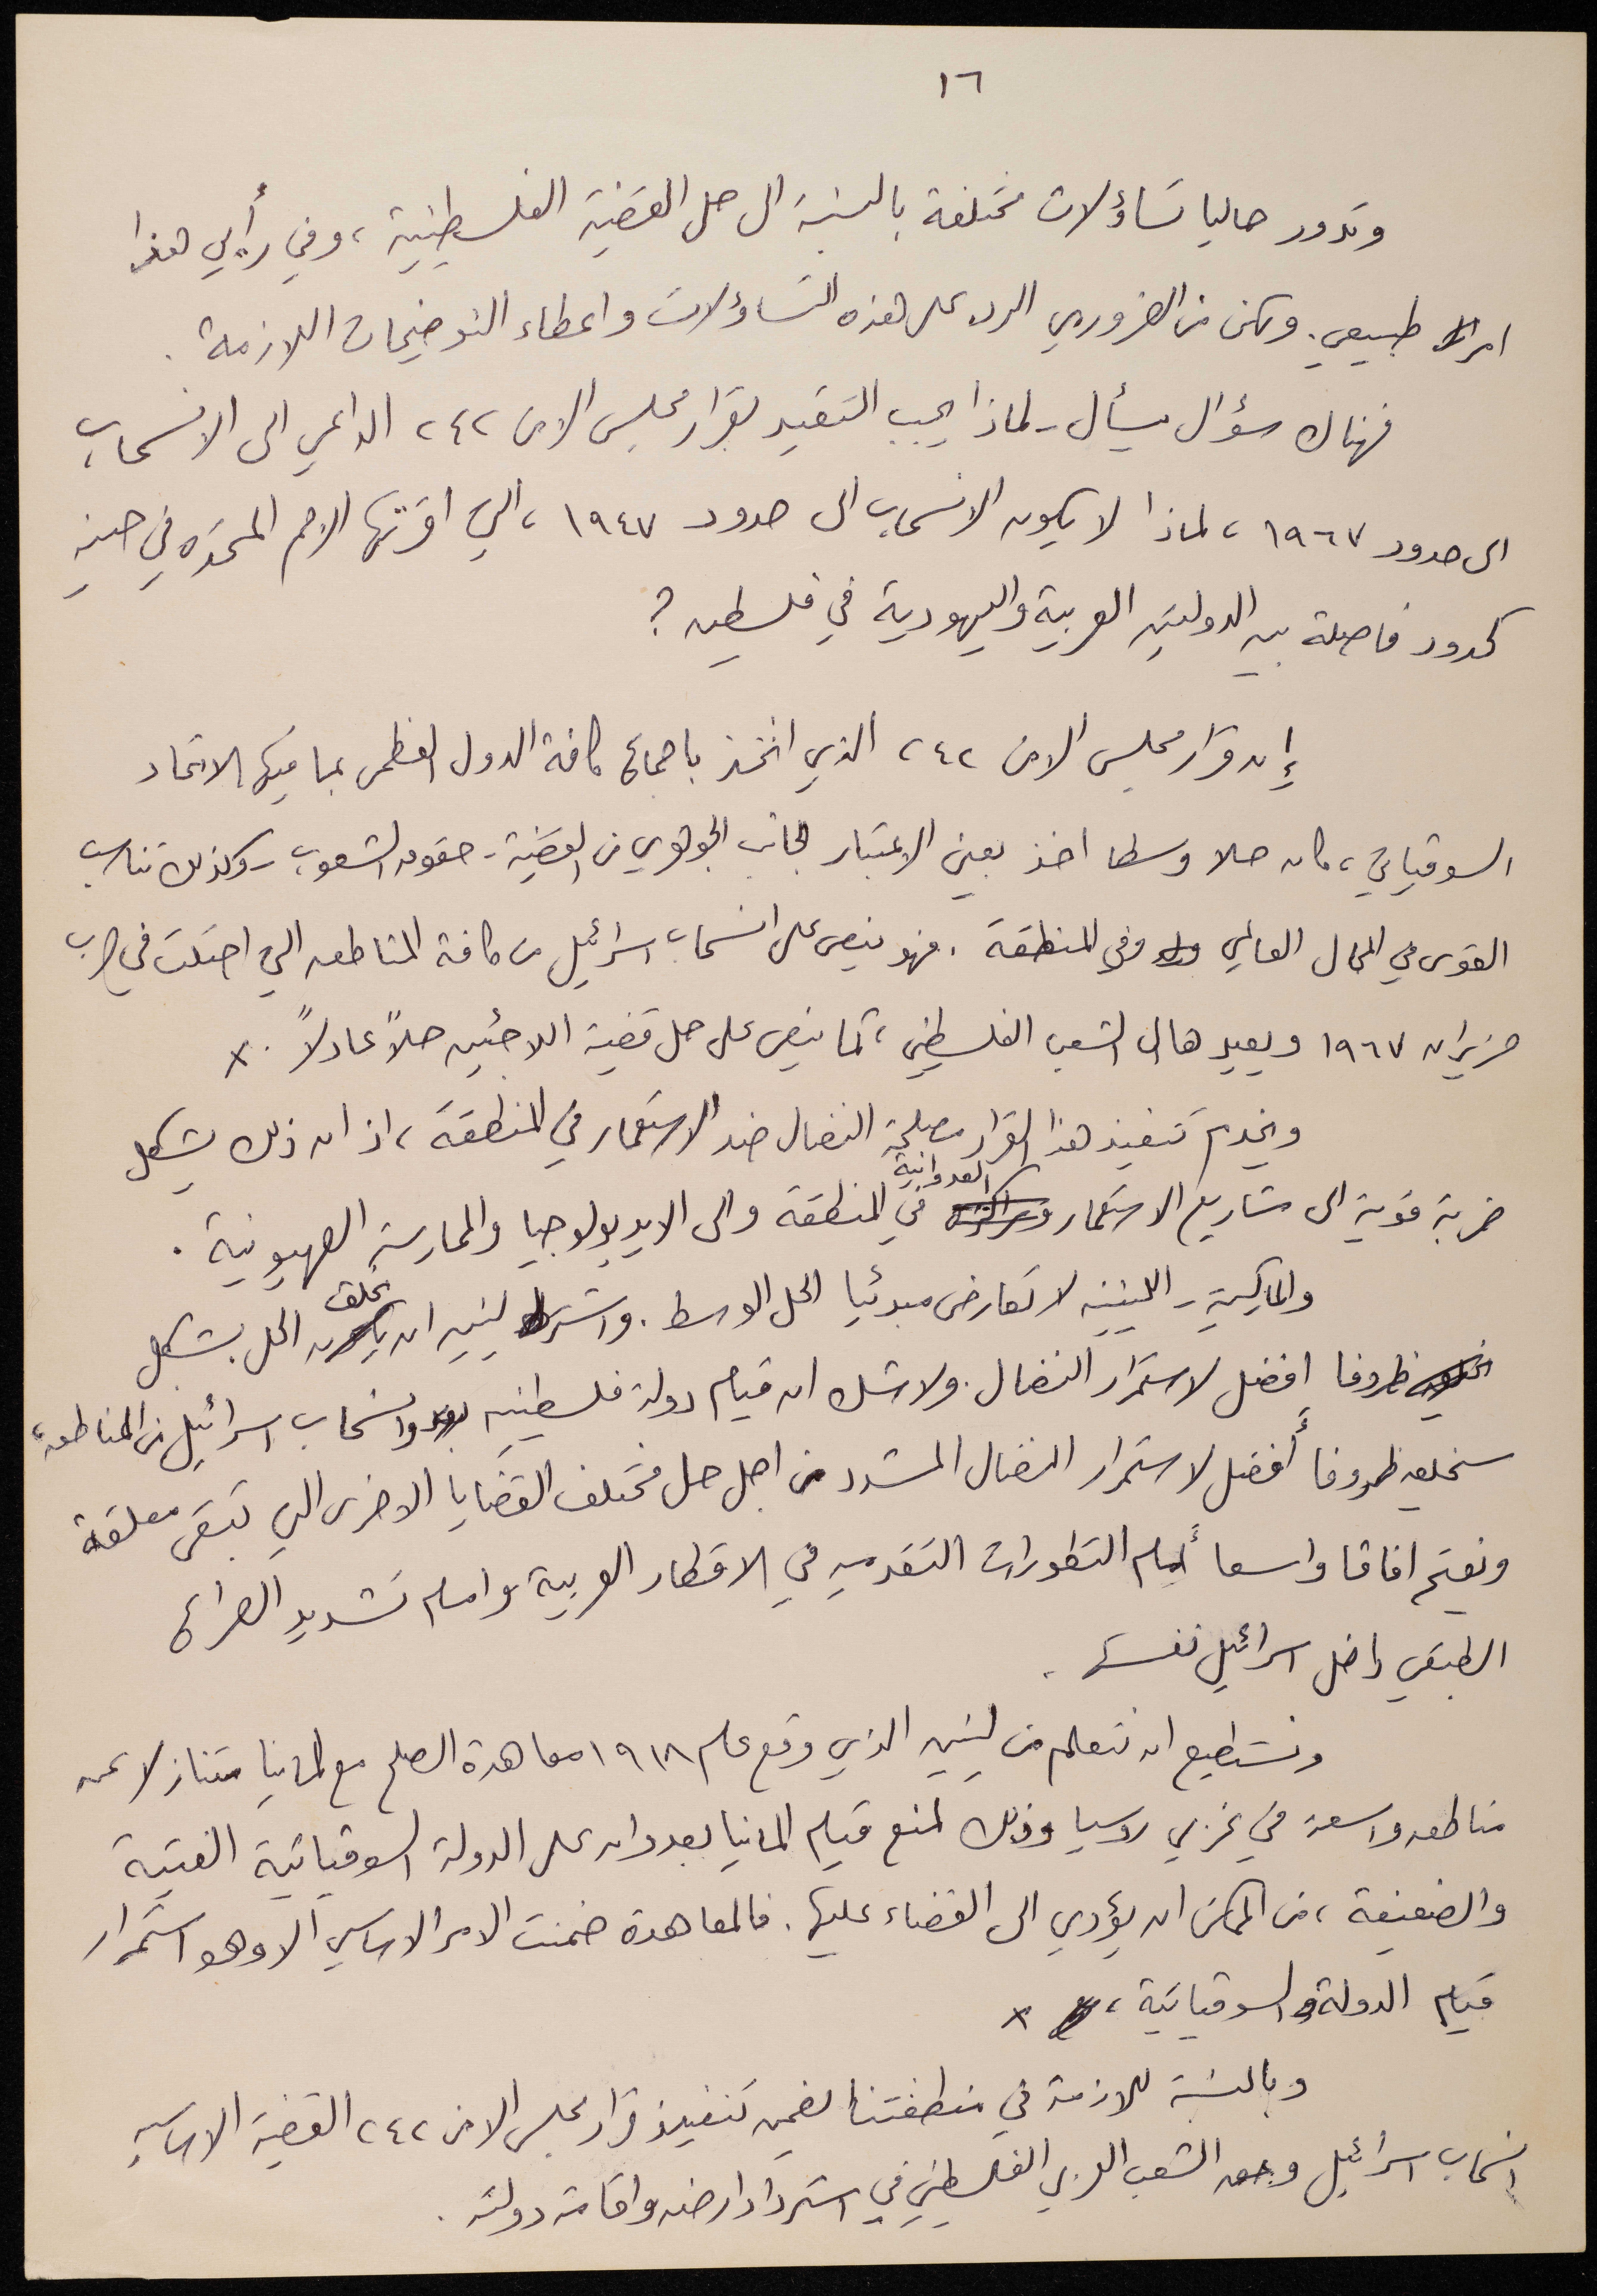 ١٦
وتدور حاليا تساؤلات مختلفة بالنسبة الى حل القضية الفلسطينية، وفي رأيي هذا
امر طبيعي. ولكن من الضروري الرد على هذه التساؤلات واعطاء التوضيحات اللازمة.
فهناك سؤال يسأل - لماذا يجب التقيد بقرار مجلس الامن ٢٤٢ الداعي الى الانسحاب
الى حدود ١٩٦٧، لماذا لا يكون الانسحاب الى حدود ١٩٤٧، التي اقرتها الامم المتحده في حينه
كحدود فاصلة بين الدولتين العربية واليهودية في فلسطين؟
إن قرار مجلس الامن ٢٤٢ الذي اتخذ باجماع كافة الدول العظمى بما فيها الاتحاد
السوفياتي، كان حلا وسطا اخذ بعين الاعتبار الجانب الجوهري من القضية - حقوق الشعوب - وكذلك تناسب
القوى في المجال العالمي وفي المنطقة. فهو ينص على انسحاب اسرائيل من كافة المناطق التي احتلت في حرب
حزيران ١٩٦٧ ويعيدها الى الشعب الفلسطيني، كما ينص على حل قضية اللاجئين حلاً عادلاً. x
ويخدم تنفيذ هذا القرار مصلحة النضال ضد الاستعمار في المنطقة، اذ ان ذلك يشكل
ضربة قوية الى مشاريع الاستعمار العدوانية في المنطقة والى الايديولوجيا والممارسة الصهيونية.
والماركسية - اللينينية لا تعارض مبدئيا الحل الوسط. واشترط لينين ان يخلق الحل بشكل
ظروفا افضل لاستمرار النضال. ولا شك ان قيام دولة فلسطينية وانسحاب اسرائيل من المناطق،
سيخلق ظروفا أفضل لاستمرار النضال المشدد من اجل حل مختلف القضايا الاخرى التي تبقى معلقة
ويفتح افاقا واسعا أمام التطورات التقدميه في الاقطار العربية وامام تشديد الصراع
الطبقي داخل اسرائيل نفسها.
ونستطيع ان نتعلم من لينين الذي وقع عام ١٩١٨ معاهدة الصلح مع المانيا متنازلا عن
مناطق واسعة في غربي روسيا وذلك لمنع قيام المانيا بعدوان على الدولة السوفياتية الفتية
والضعيفة، من الممكن ان يؤدي الى القضاء عليها. فالمعاهدة ضمنت الامر الاساسي الا وهو استمرار
قيام الدولة السوفياتية، x
وبالنسبة للازمة في منطقتنا يضمن تنفيذ قرار مجلس الامن ٢٤٢ القضية الاساسية
انسحاب اسرائيل وحق الشعب العربي الفلسطيني في استرداد ارضه واقامة دولته.